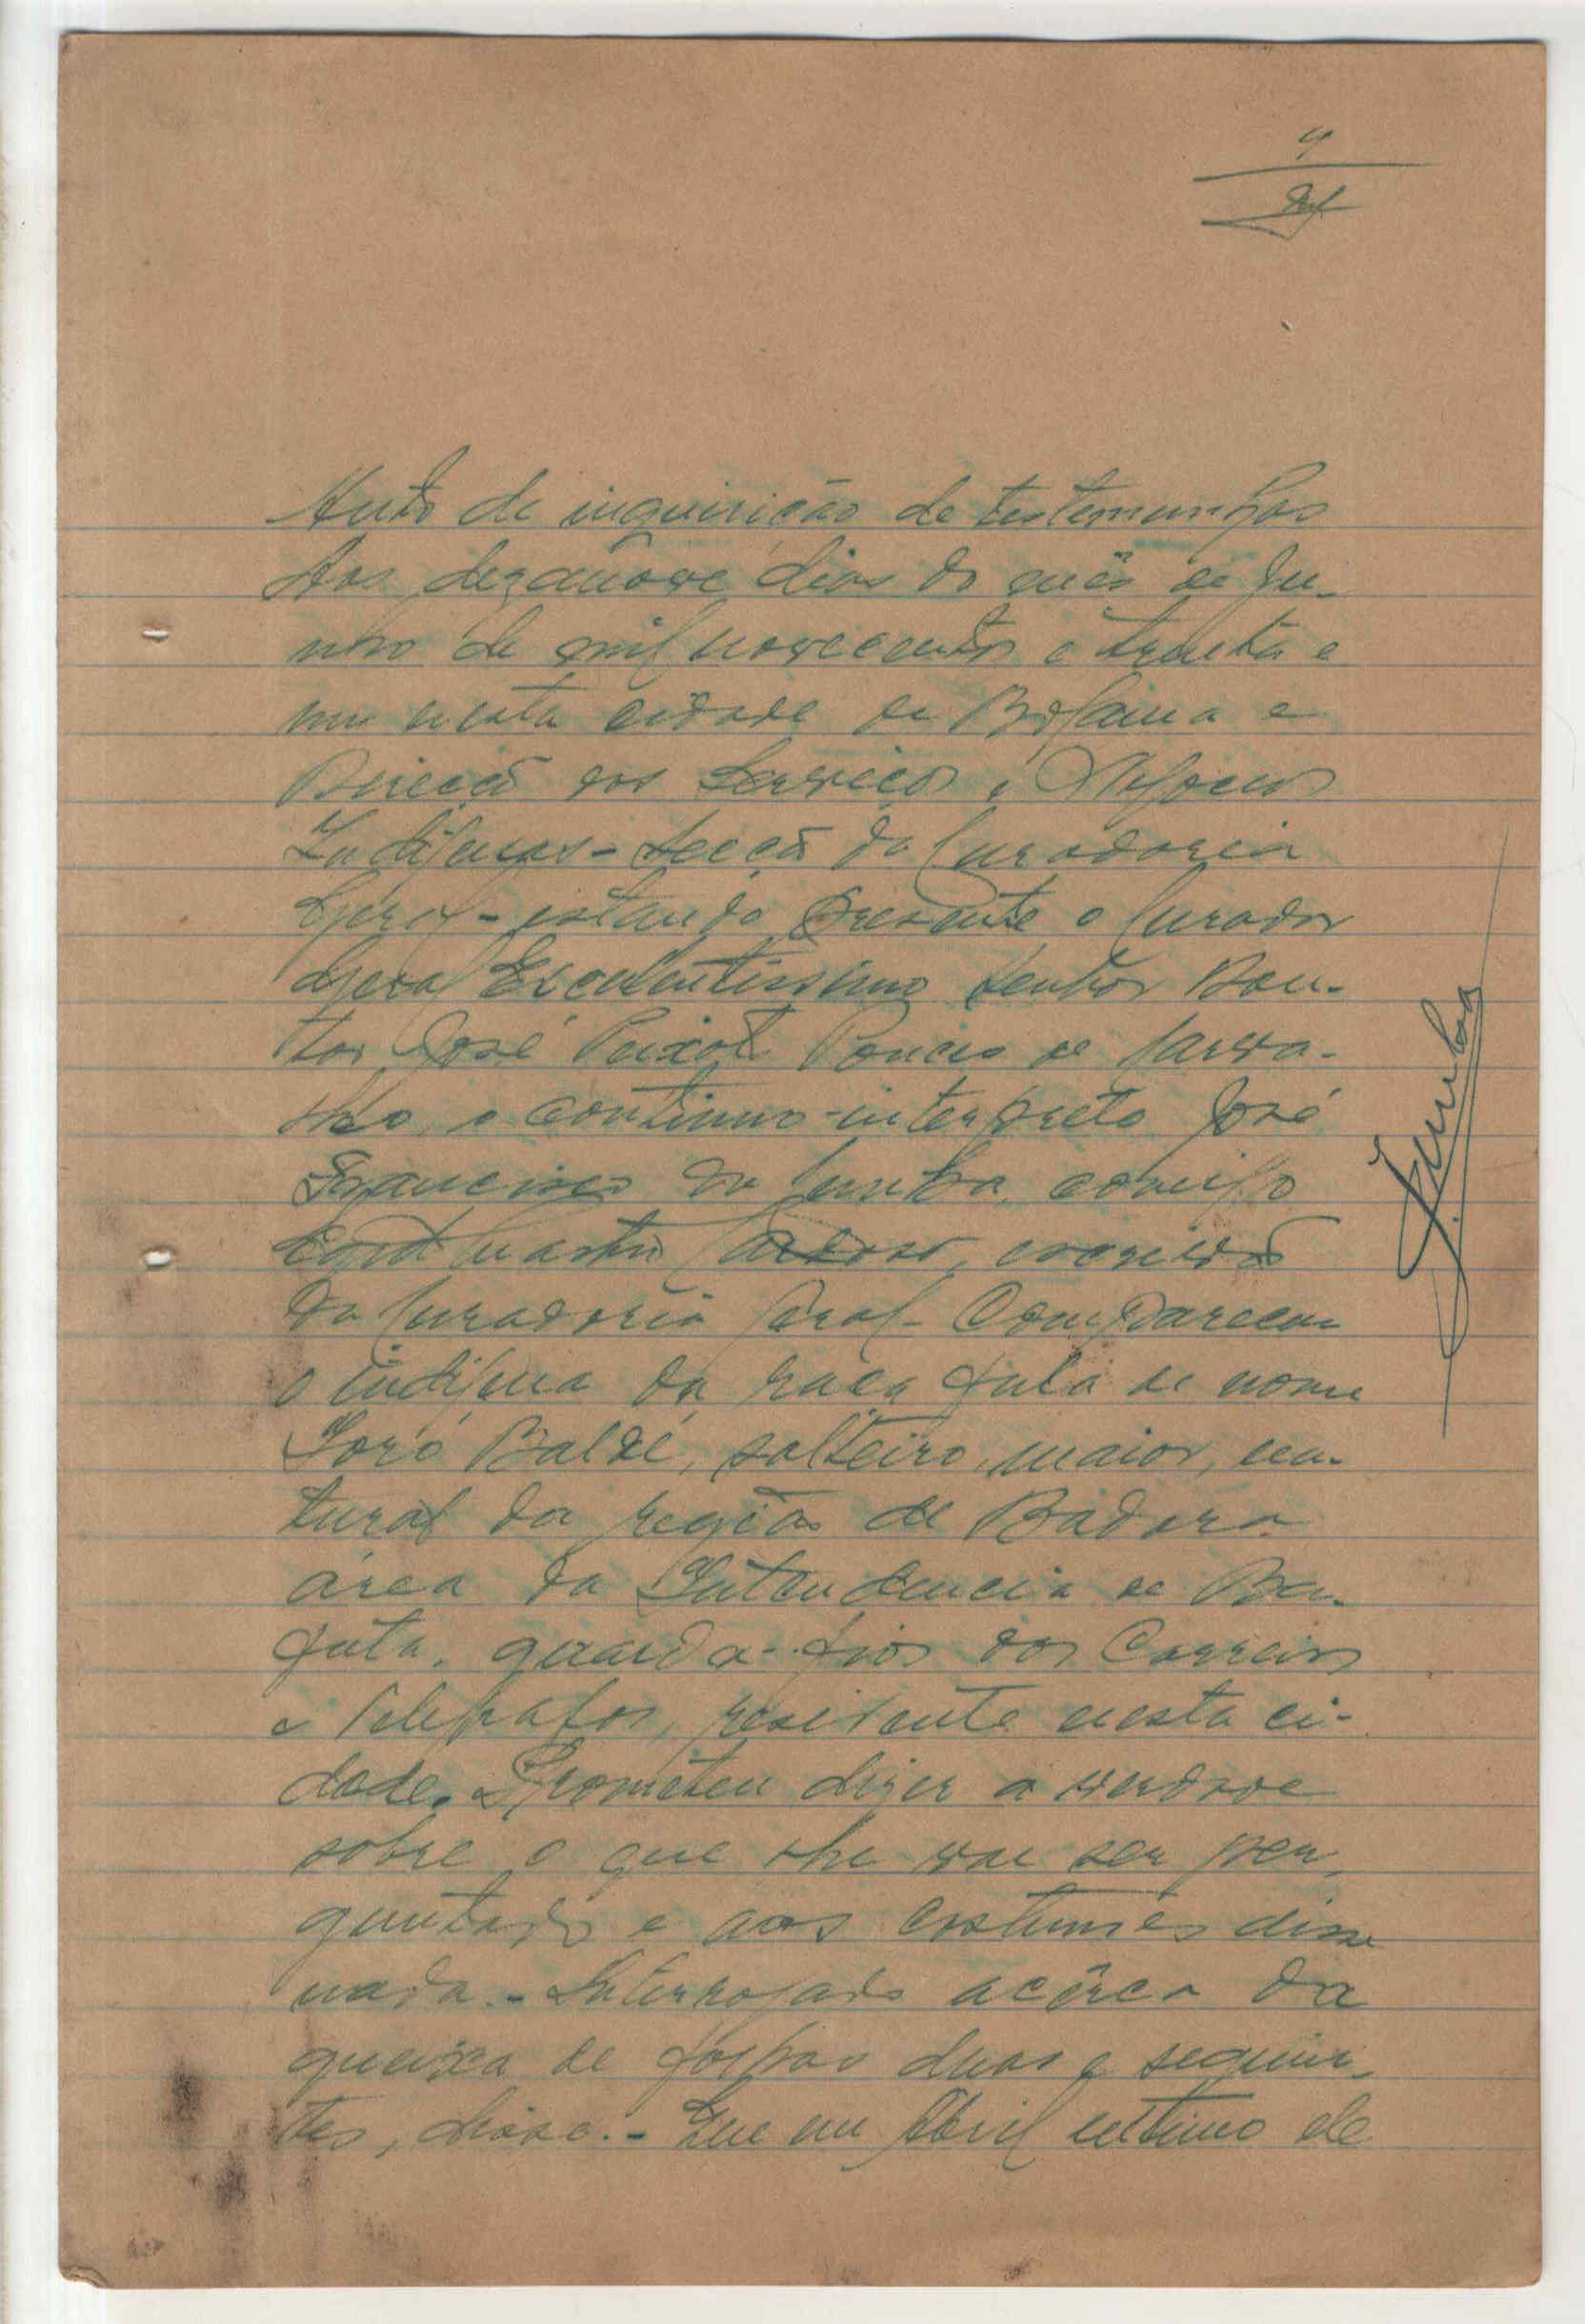 4
Auto de inquirição de testemunhas
Aos dezanove dias do mês de Ju-
nho de mil novecentos e trinta e
um nesta cidade de Bolama e
Direcção dos Serviços e Negocios
Indigenas - Secção da Curadoria
Geral - estando presente o Curador
Geral Excelentissimo Senhor Dou-
tor José Peixoto Ponces de Carva-
lho, o contínuo-interprete José
Francisco da Cunha, comigo
Cardoso, escrivão
da Curadoria Geral - Compareceu
o indígena da raça fula de nome
Soró Baldé, solteiro, maior, na-
tural da região de Badora
área da Intendencia de Ba-
fatá, guarda-fios dos Correios
e Telegrafos, residente nesta ci-
dade. Prometeu dizer a verdade
sobre o que lhe vae ser per-
guntado e aos costumes disse
nada. - Interrogado acêrca da
queixa de folhas duas e seguin-
tes, disse. - Que em Abril ultimo ele
Cunha